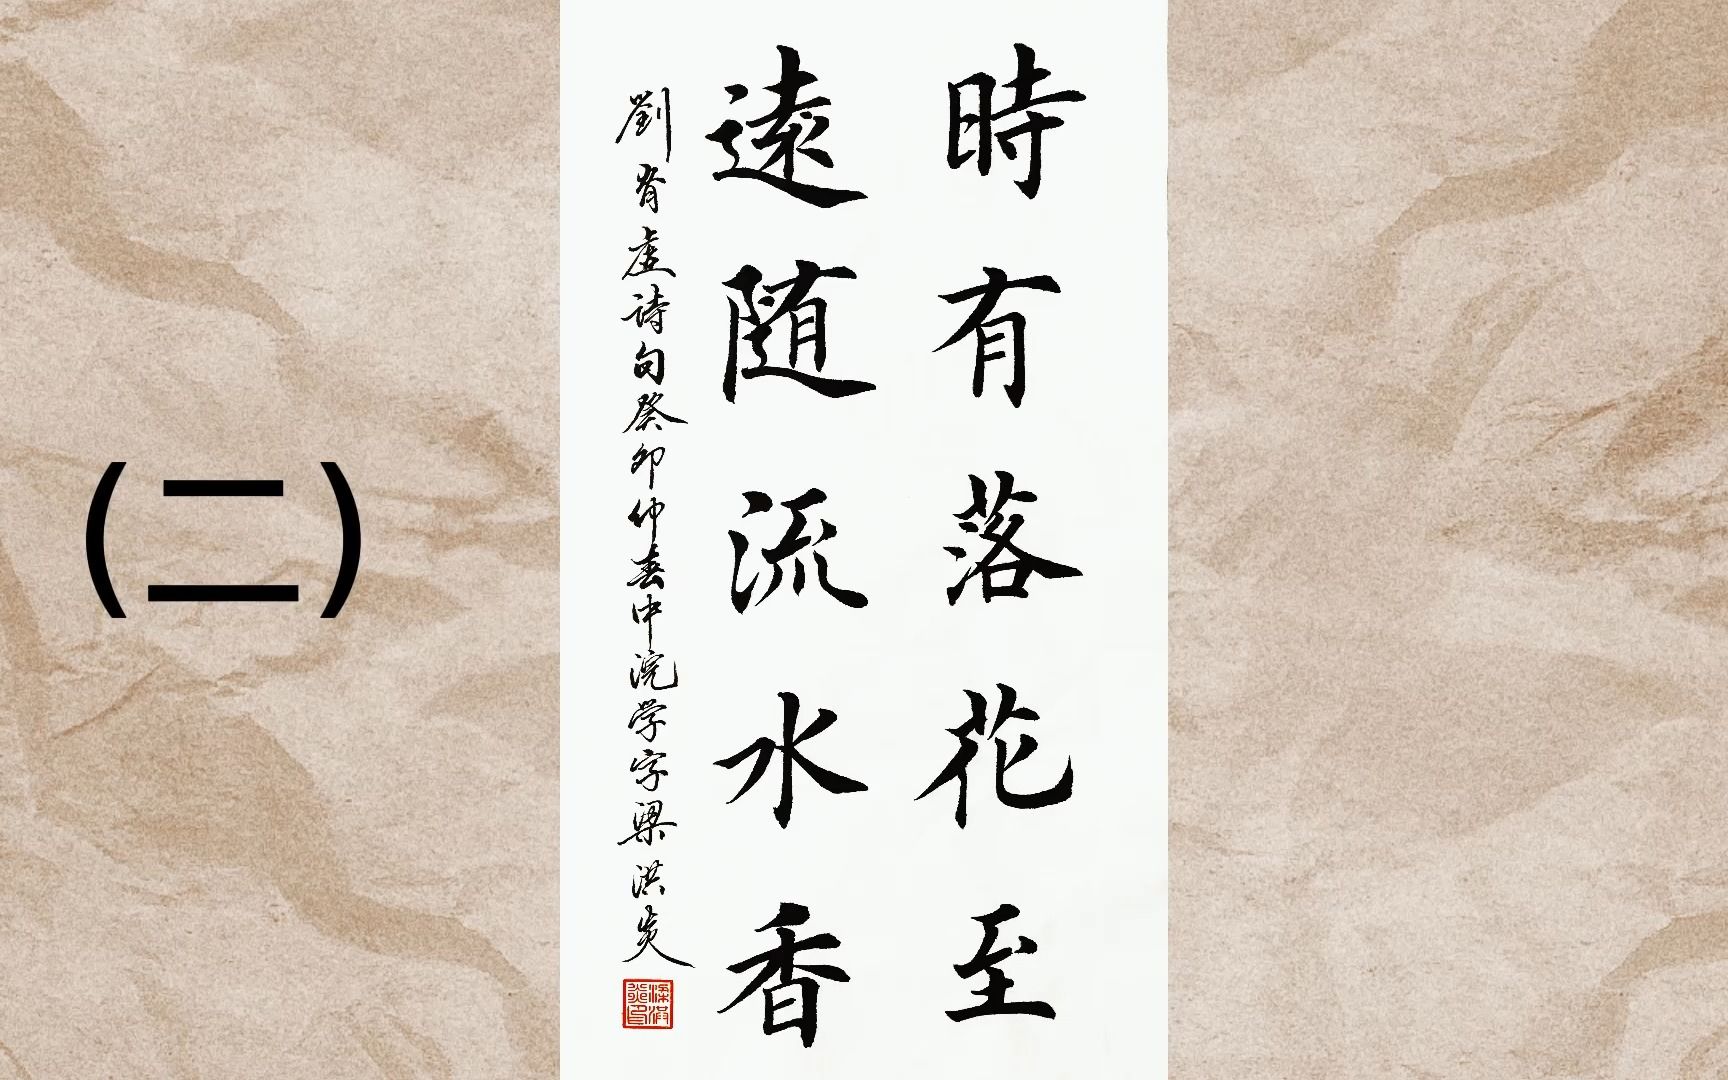 （二）
時有落花至
遠随流水香
劉眘虛詩句癸卯仲春中浣学字梁洪炎